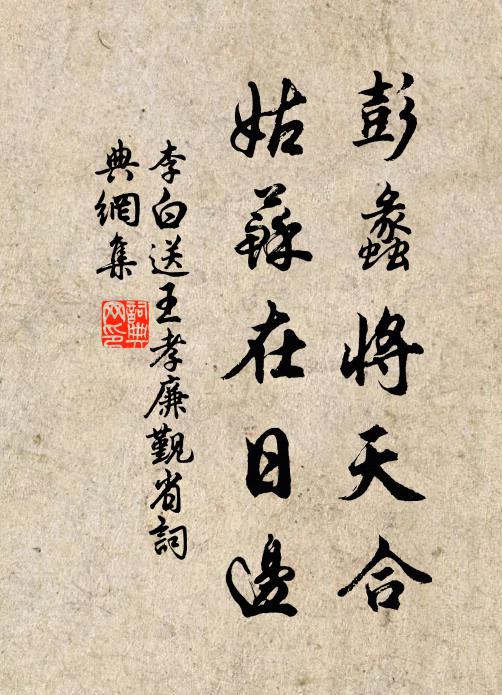 彭蠡將天合
姑蘇在日邊
李白送王孝廉覲省詞
典網集
詞典網印